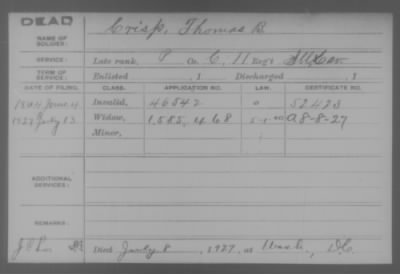 DEAD
NAME OF SOLDIER: Crisp, Thomas B.
SERVICE: Late rank, P Co. C, 11 Reg't Cav
TERM OF SERVICE: Enlisted , 1 Discharged , 1
DATE OF FILING. CLASS. APPLICATION NO. LAW. CERTIFICATE NO.
Invalid, 46542 52423
1927 July 13 Widow, 1,585,468 A 8-8-27
Minor,
ADDITIONAL SERVICES:
REMARKS:
Died July 8, 1927, at Wash., D.C.